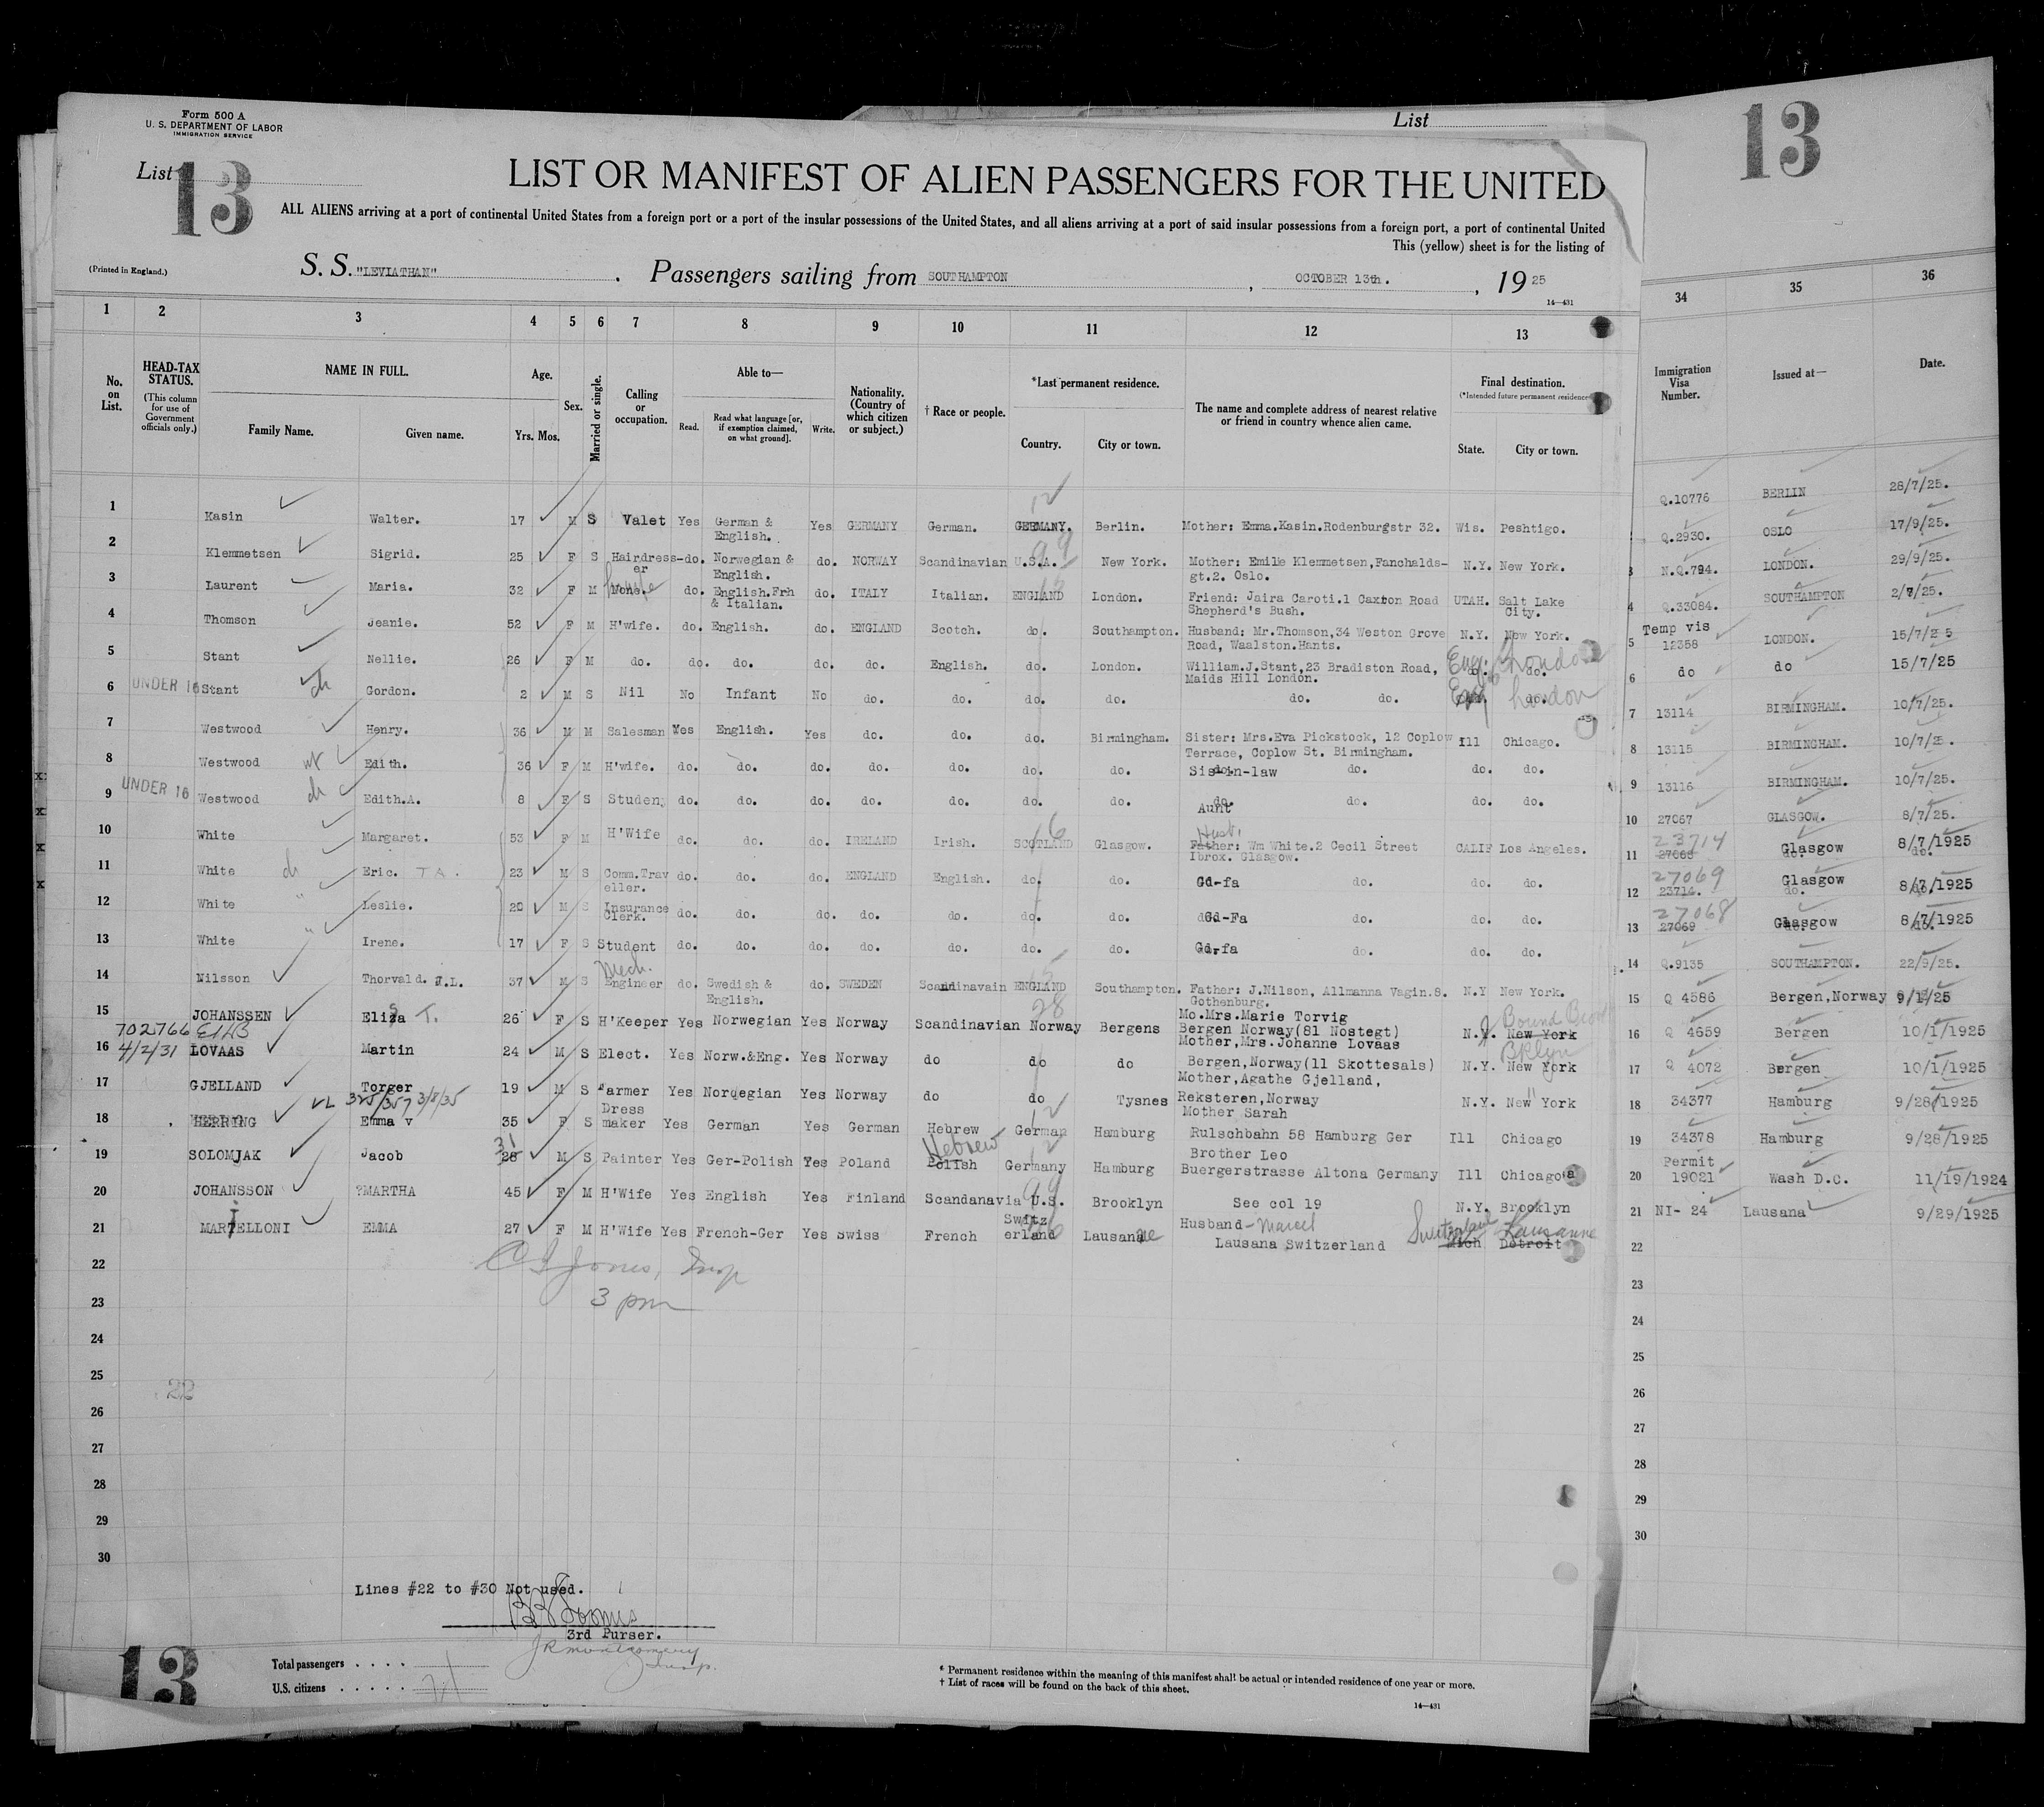 List
13
Form 500 A
U. S. DEPARTMENT OF LABOR
IMMIGRATION SERVICE
List 13
LIST OR MANIFEST OF ALIEN PASSENGERS FOR THE UNITED
ALL ALIENS arriving at a port of continental United States from a foreign port or a port of the insular possessions of the United States, and all aliens arriving at a port of said insular possessions from a foreign port, a port of continental United
This (yellow) sheet is for the listing of
(Printed in England.)
S. S. "LEVIATHAN" . Passengers sailing from SOUTHAMPTON , OCTOBER 13th. , 19 25
14—431
1 2 3 4 5 6 7 8 9 10 11 12 13 34 35 36
No. on List.
HEAD-TAX STATUS. (This column for use of Government officials only.)
NAME IN FULL. Family Name. Given name.
Age. Yrs. Mos.
Sex.
Married or single.
Calling or occupation.
Able to— Read. Read what language [or, if exemption claimed, on what ground]. Write.
Nationality. (Country of which citizen or subject.)
† Race or people.
*Last permanent residence. Country. City or town.
The name and complete address of nearest relative or friend in country whence alien came.
Final destination. (*Intended future permanent residence
State. City or town.
Immigration Visa Number.
Issued at—
Date.
1 Kasin Walter. 17 M S Valet Yes German & English. Yes GERMANY German. GERMANY. Berlin. Mother: Emma.Kasin.Rodenburgstr 32. Wis. Peshtigo. Q.10776 BERLIN 28/7/25.
2 Klemmetsen Sigrid. 25 F S Hairdress-er do. Norwegian & English. do. NORWAY Scandinavian U.S.A. New York. Mother: Emilie Klemmetsen,Fanchalds-gt.2. Oslo. N.Y. New York. Q.2930. OSLO 17/9/25.
3 Laurent Maria. 32 F M None. do. English.Frh & Italian. do. ITALY Italian. ENGLAND London. Friend: Jaira Caroti.1 Caxton Road Shepherd's Bush. UTAH. Salt Lake City. 3 N.Q.794. LONDON. 29/9/25.
4 Thomson Jeanie. 52 F M H'wife. do. English. do. ENGLAND Scotch. do. Southampton. Husband: Mr.Thomson,34 Weston Grove Road, Waalston.Hants. N.Y. New York. 4 Q.33084. SOUTHAMPTON 2/7/25.
5 Stant Nellie. 26 F M do. do. do. do. do. English. do. London. William.J.Stant,23 Bradiston Road, Maids Hill London. Eng. London do. 5 Temp vis 12358 LONDON. 15/7/25
6 UNDER 16 Stant ch Gordon. 2 M S Nil No Infant No do. do. do. do. do. do. Eng London do. 6 do do 15/7/25
7 Westwood Henry. 36 M M Salesman Yes English. Yes do. do. do. Birmingham. Sister: Mrs.Eva Pickstock, 12 Coplow Terrace, Coplow St. Birmingham. Ill Chicago. 7 13114 BIRMINGHAM. 10/7/25.
8 Westwood wf Edith. 36 F M H'wife. do. do. do. do. do. do. do. Sis-in-law do. do. do. 8 13115 BIRMINGHAM. 10/7/25.
9 UNDER 16 Westwood ch Edith.A. 8 F S Studen do. do. do. do. do. do. do. do. Aunt do. do. do. 9 13116 BIRMINGHAM. 10/7/25.
10 White Margaret. 53 F M H'Wife do. do. do. IRELAND Irish. SCOTLAND Glasgow. Husb. Father: Wm White.2 Cecil Street Ibrox. Glasgow. CALIF Los Angeles. 10 27067 GLASGOW. 8/7/25.
11 White ch Eric. T A. 23 M S Comm.Trav eller. do. do. do. ENGLAND English. do. do. Gd-fa do. do. do. 11 23714 27068 Glasgow do. 8/7/1925 do.
12 White " Leslie. 20 M S Insurance Clerk. do. do. do. do. do. do. do. Gd-Fa do. do. do. 12 27069 23714. Glasgow do. 8/7/1925 do.
13 White " Irene. 17 F S Student do. do. do. do. do. do. do. Gd-fa do. do. do. 13 27068 27069 Glasgow do. 8/7/1925 do.
14 Nilsson Thorvald. J.L. 37 M S Mech. Engineer do. Swedish & English. do. SWEDEN Scandinavain ENGLAND Southampton. Father: J.Nilson, Allmanna Vagin.8. Gothenburg. N.Y New York. 14 Q.9135 SOUTHAMPTON. 22/9/25.
15 JOHANSSEN Eliza T. 26 F S H'Keeper Yes Norwegian Yes Norway Scandinavian Norway Bergens Mo.Mrs.Marie Torvig Bergen Norway(81 Nostegt) N.Y. New York Bound Brook 15 Q 4586 Bergen,Norway 9/1/25
702766
4/2/31
16 LOVAAS Martin 24 M S Elect. Yes Norw.&Eng. Yes Norway do do do Mother,Mrs.Johanne Lovaas Bergen,Norway(11 Skottesals) N.Y. New York Bklyn 16 Q 4659 Bergen 10/1/1925
17 GJELLAND Torger 19 M S Farmer Yes Norwegian Yes Norway do do Tysnes Mother,Agathe Gjelland, Reksteren,Norway N.Y. New York " 17 Q 4072 Bergen 10/1/1925
VL 325/357 3/8/35
18 HERRING Emma v 35 F S Dress maker Yes German Yes German Hebrew German Hamburg Mother Sarah Rulschbahn 58 Hamburg Ger Ill Chicago 18 34377 Hamburg 9/28/1925
19 SOLOMJAK Jacob 31 28 M S Painter Yes Ger-Polish Yes Poland Hebrew Polish Germany Hamburg Brother Leo Buergerstrasse Altona Germany Ill Chicago 19 34378 Hamburg 9/28/1925
20 JOHANSSON MARTHA 45 F M H'Wife Yes English Yes Finland Scandanavia U.S. Brooklyn See col 19 N.Y. Brooklyn 20 Permit 19021 Wash D.C. 11/19/1924
21 MARTELLONI EMMA 27 F M H'Wife Yes French-Ger Yes Swiss French Switz erland Lausanne Husband-Marcel Lausana Switzerland Switzerland Lausanne Mich Detroit 21 NI- 24 Lausana 9/29/1925
22 22
C I Jones, Insp
23 23
3 pm
24 24
25 25
22
26 26
27 27
28 28
29 29
30 30
Lines #22 to #30 Not used.
3rd Purser.
JR Montgomery
Insp.
13
Total passengers . . . .
U.S. citizens . . . . .
21
* Permanent residence within the meaning of this manifest shall be actual or intended residence of one year or more.
† List of races will be found on the back of this sheet.
14—431